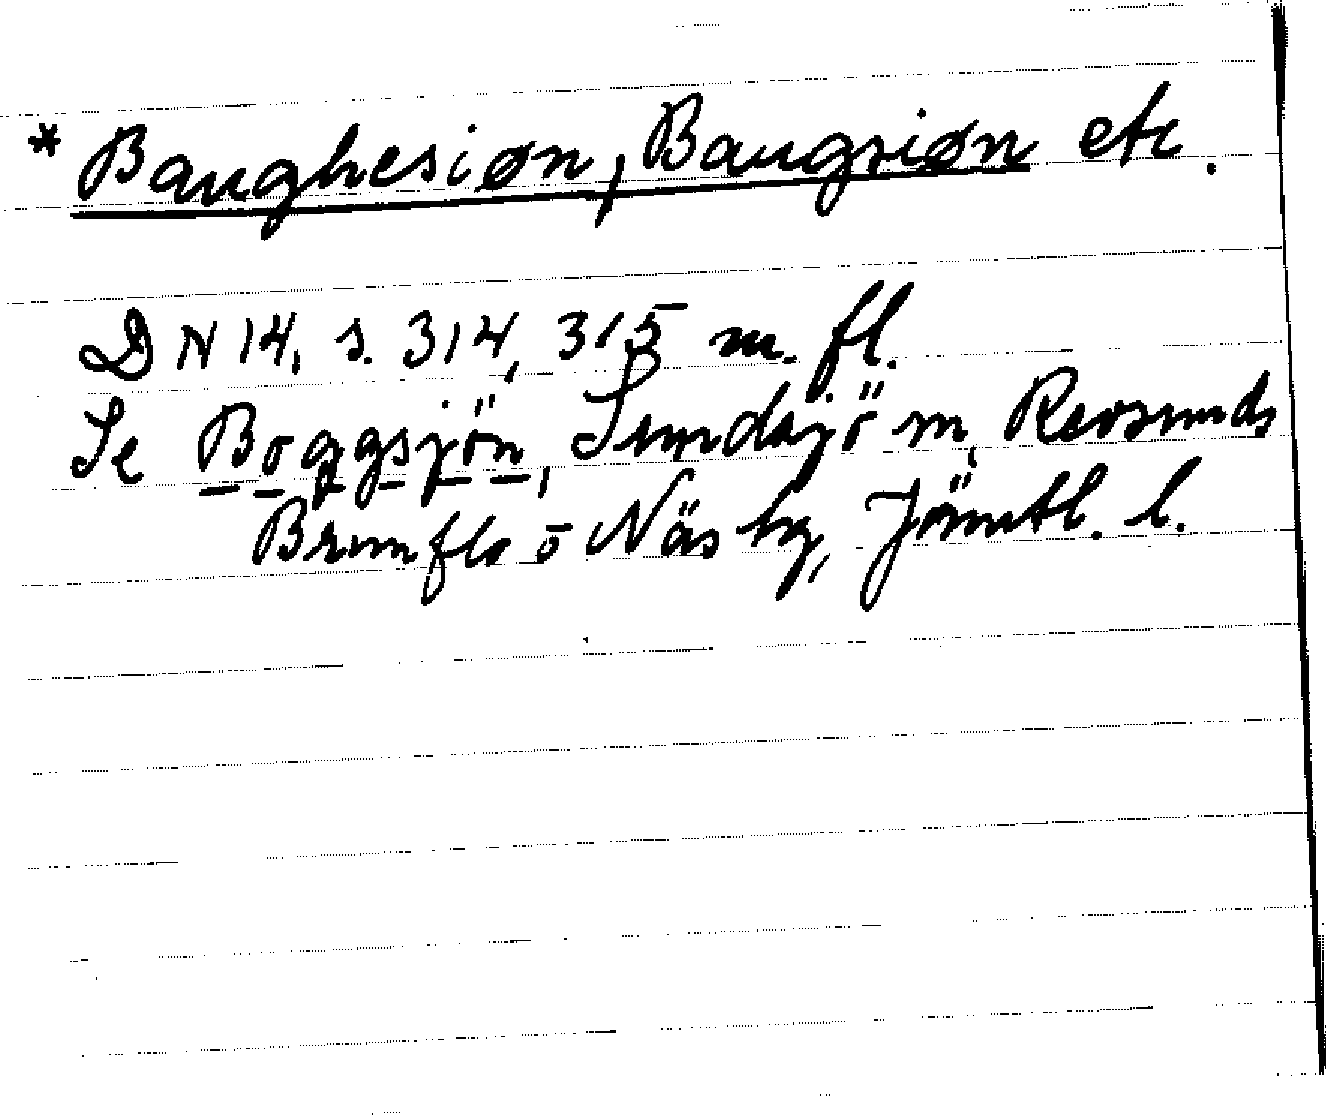 * Baughesiøn, Baugsiøn etc.
DN 14, s. 314, 315 m. fl.
Se Boggsjön, Sundsjö m, Revsunds
Brunflo o Näs hg, Jämtl. l.